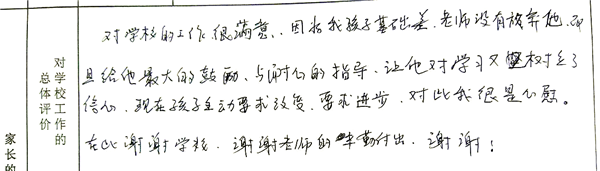 对学校的工作很满意。因为我孩子基础差，老师没有放弃他，而
且给他最大的鼓励，与耐心的指导，让他对学习又树立了
信心，现在孩子主动要求改变，要求进步，对此我很是心慰。
在此谢谢学校，谢谢老师的辛勤付出，谢谢！
对学校工作的
总体评价
家长的